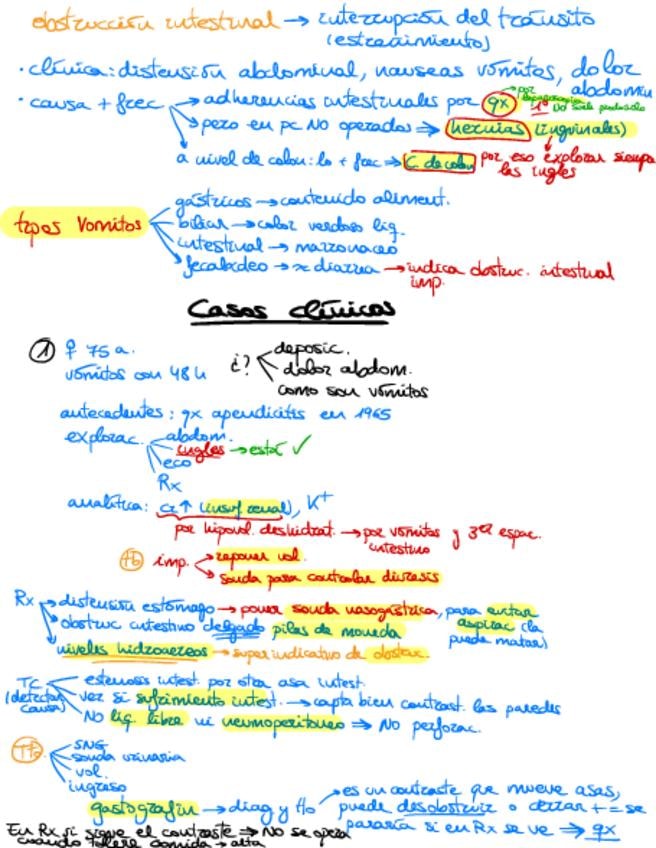 obstrucción intestinal → interrupción del tránsito
(estreñimiento)
· clínica: distensión abdominal, nauseas vómitos, dolor
abdomin
· causa + frec → adherencias intestinales por qx 1º
pero en pc NO operados ⇒ hernias (inguinales)
a nivel de colon: lo + frec ⇒ C. de colon por eso explorar siempre
las ingles
tipos vómitos
gástricos → contenido aliment.
biliar → color verdoso liq.
intestinal → marronaceo
fecaloideo → ≈ diarrea → indica obstruc. intestinal
imp.
Casos clínicos
① ♀ 75 a.
vómitos con 48 h ¿?
deposic.
dolor abdom.
como son vómitos
antecedentes: qx apendicitis en 1965
explorac.
abdom.
ingles → está ✓
eco
Rx
analítica: cr ↑ (insuf renal), K+
por hipovol. deshidrat. → por vómitos y 3er espac.
intestino
tto imp.
reponer vol.
sonda para controlar diuresis
Rx
distensión estómago → poner sonda nasogástrica, para evitar
aspirac (la
puede matar)
obstruc intestino delgado pilas de moneda
niveles hidroaereos → super indicativo de obstruc.
TC
(detectar
causa)
estenosis intest. por otra asa intest.
ver si sufrimiento intest. → capta bien contrast. las paredes
NO liq. libre ni neumoperitoneo ⇒ NO perforac.
Tto
SNG
sonda urinaria
vol.
ingreso
gastografin → diag y tto
es un contraste que mueve asas,
puede desobstruir o cerrar + = se
pararía si en Rx se ve ⇒ qx
En Rx si sigue el contraste ⇒ NO se opera
cuando tolere comida → alta